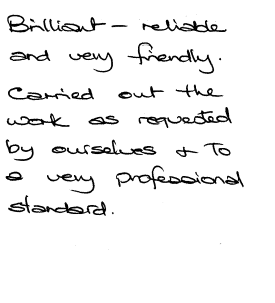 Brilliant - reliable
and very friendly.
Carried out the
work as requested
by ourselves + To
a very professional
standard.